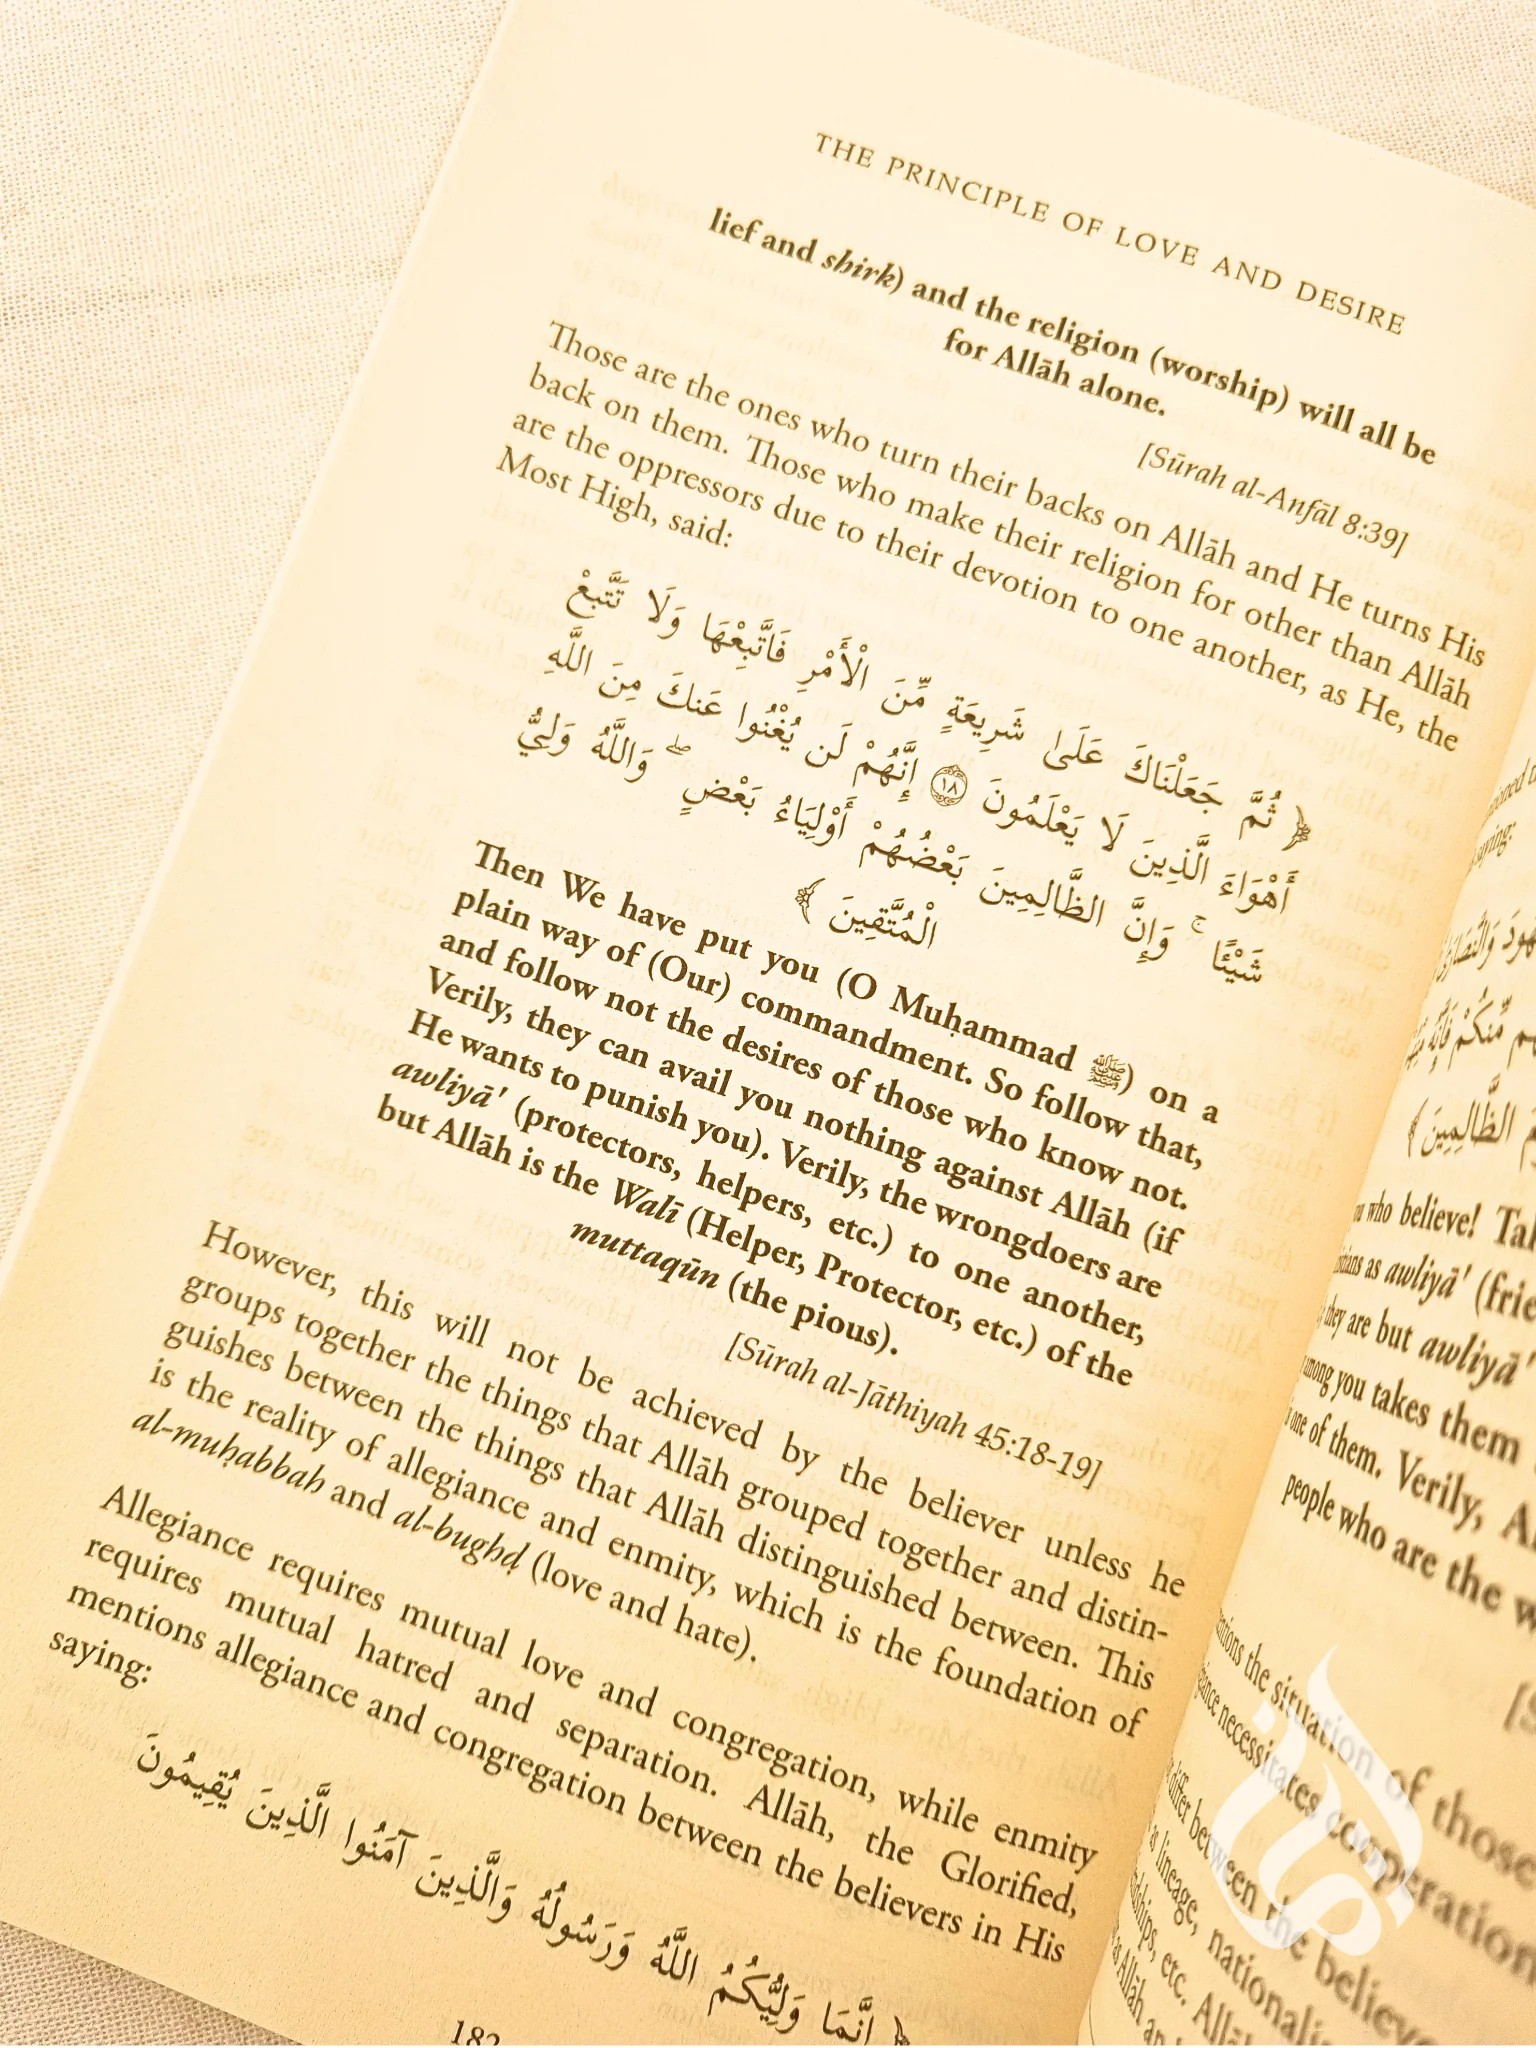 THE PRINCIPLE OF LOVE AND DESIRE
lief and shirk) and the religion (worship) will all be
for Allāh alone.
[Sūrah al-Anfāl 8:39]
Those are the ones who turn their backs on Allāh and He turns His
back on them. Those who make their religion for other than Allāh
are the oppressors due to their devotion to one another, as He, the
Most High, said:
﴿ ثُمَّ جَعَلْنَاكَ عَلَىٰ شَرِيعَةٍ مِّنَ الْأَمْرِ فَاتَّبِعْهَا وَلَا تَتَّبِعْ
أَهْوَاءَ الَّذِينَ لَا يَعْلَمُونَ ۝١٨ إِنَّهُمْ لَن يُغْنُوا عَنكَ مِنَ اللَّهِ
شَيْئًا ۚ وَإِنَّ الظَّالِمِينَ بَعْضُهُمْ أَوْلِيَاءُ بَعْضٍ ۖ وَاللَّهُ وَلِيُّ
الْمُتَّقِينَ ﴾
Then We have put you (O Muḥammad ﷺ) on a
plain way of (Our) commandment. So follow that,
and follow not the desires of those who know not.
Verily, they can avail you nothing against Allāh (if
He wants to punish you). Verily, the wrongdoers are
awliyā' (protectors, helpers, etc.) to one another,
but Allāh is the Walī (Helper, Protector, etc.) of the
muttaqūn (the pious).
[Sūrah al-Jāthiyah 45:18-19]
However, this will not be achieved by the believer unless he
groups together the things that Allāh grouped together and distin-
guishes between the things that Allāh distinguished between. This
is the reality of allegiance and enmity, which is the foundation of
al-muḥabbah and al-bughḍ (love and hate).
Allegiance requires mutual love and congregation, while enmity
requires mutual hatred and separation. Allāh, the Glorified,
mentions allegiance and congregation between the believers in His
saying:
﴿ إِنَّمَا وَلِيُّكُمُ اللَّهُ وَرَسُولُهُ وَالَّذِينَ آمَنُوا الَّذِينَ يُقِيمُونَ
182
saying:
الظَّالِمِينَ ﴾
who believe!
as awliyā'
they are but awliyā'
among you takes them
one of them. Verily,
people who are the
the situation of those
necessitates cooperation
differ between the
as lineage,
etc.
Allāh